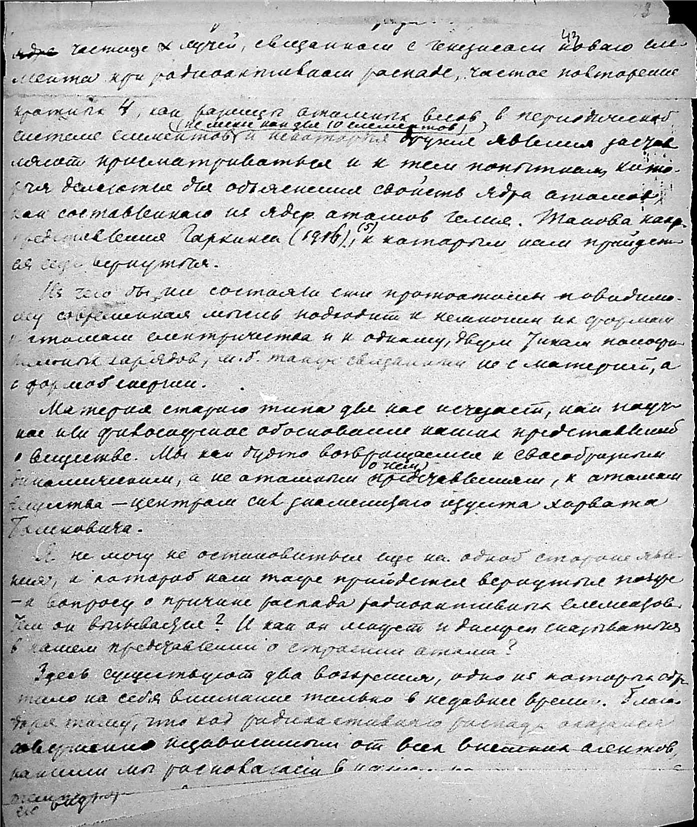 43
частице α лучей, связанном с генезисом новаго эле-
мента при радиоактивном распаде, частое повторение
кратных 4, как разницы атомных весов в периодической
(не менее как две 10 элементов)
системе элементов и некоторыя другия явления застав
ляют присматриваться и к тем попыткам, кото-
рыя делаются для объяснения свойств ядра атомов
как составленнаго из ядер атомов гелия. Таковы напр.
представления Гаркинса (1916),(5) к которым нам придет
ся еще вернуться.
Из чего бы ни состояли эти протоатомы повидимо-
му современная мысль подходит к немногим их формам
к атомам электричества и к одному, двум типам положи-
тельных зарядов, м.б. также связанными не с материей, а
с формой энергии.
Материя стараго типа для нас исчезает, как науч-
ное или философское обоснование наших представлений
о веществе. Мы как будто возвращаемся к своеобразным
о нем
динамическим, а не атомным представлениям, к атомам
вещества – центрам сил знаменитаго иезуита хорвата
Бошковича.
Я не могу не остановиться еще на одной стороне явле-
ния, к которой нам тоже прийдется вернуться позже
– к вопросу о причине распада радиоактивных элементов.
Чем он вызывается? И как он может и должен сказываться
в нашем представлении о строении атома?
Здесь существуют два воззрения, одно из которых обра-
тило на себя внимание только в недавнее время. Блага-
даря тому, что ход радиоактивнаго распада оказался
совершенно независимым от всех внешних агентов,
какими мы располагаем в